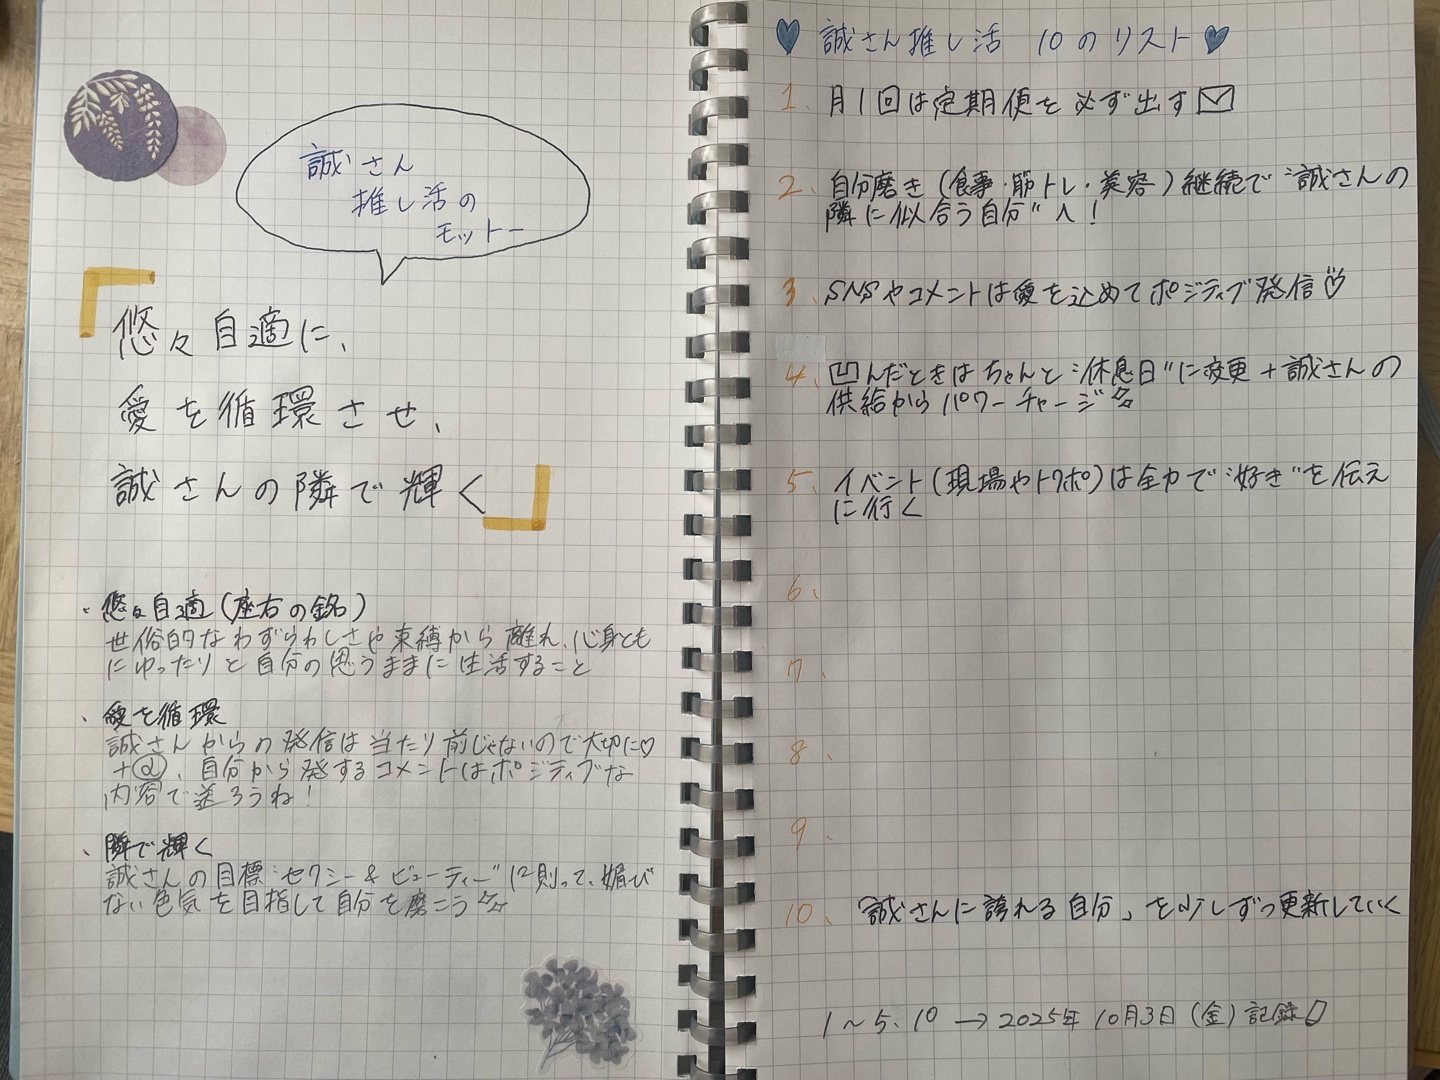 誠さん
推し活の
モットー
「悠々自適に、
愛を循環させ、
誠さんの隣で輝く」
・悠々自適(座右の銘)
世俗的なわずらわしさや束縛から離れ、心身とも
にゆったりと自分の思うままに生活すること
、愛を循環
誠さんからの発信は当たり前じゃないので大切に♡
+@、自分から発するコメントはポジティブな
内容で送ろうね!
、隣で輝く
誠さんの目標“セクシー&ビューティー”に則って、媚び
ない色気を目指して自分を磨こう
♥ 誠さん推し活 10のリスト ♥
1、月1回は定期便を必ず出す
2、自分磨き(食事・筋トレ・美容)継続で“誠さんの
隣に似合う自分”へ!
3、SNSやコメントは愛を込めてポジティブ発信♡
4、凹んだときはちゃんと“休息日”に変更+誠さんの
供給からパワーチャージ
5、イベント(現場やトワポ)は全力で“好き”を伝え
に行く
6、
7、
8、
9、
10、「誠さんに誇れる自分」を少しずつ更新していく
1~5、10→2025年10月3日(金)記録